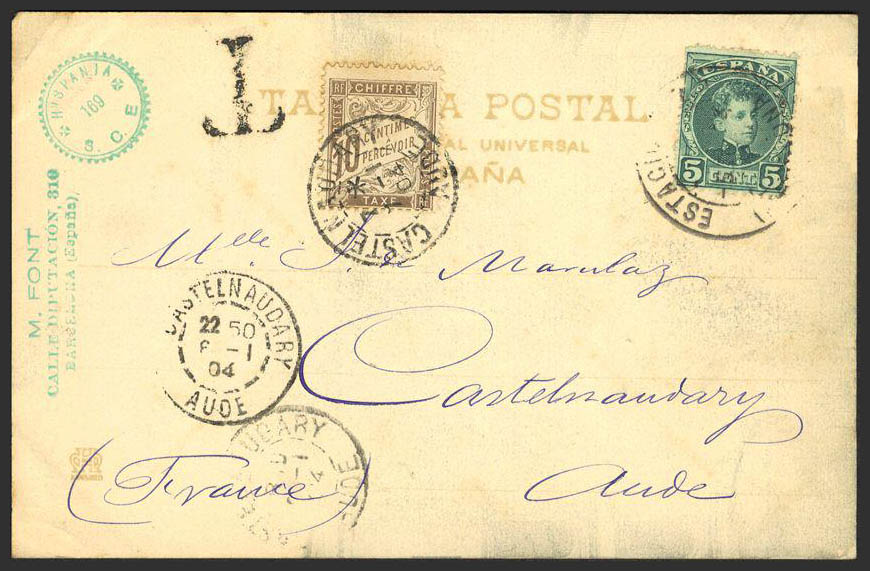 HISPANIA
169
S. C. E
M. FONT
CALLE DIPUTACIÓN, 310
BARCELONA (España)
T
TARJETA POSTAL
UNIVERSAL
ESPAÑA
CHIFFRE
RF
10 CENTIMES
PERCEVOIR
TAXE
CASTELNAUDARY
AUDE
ESPAÑA
5 CENT. 5
ESTACIO
Mlle J. de Marulaz
CASTELNAUDARY
22 50
8 -1
04
AUDE
Castelnaudary
(France)
Aude
UDARY